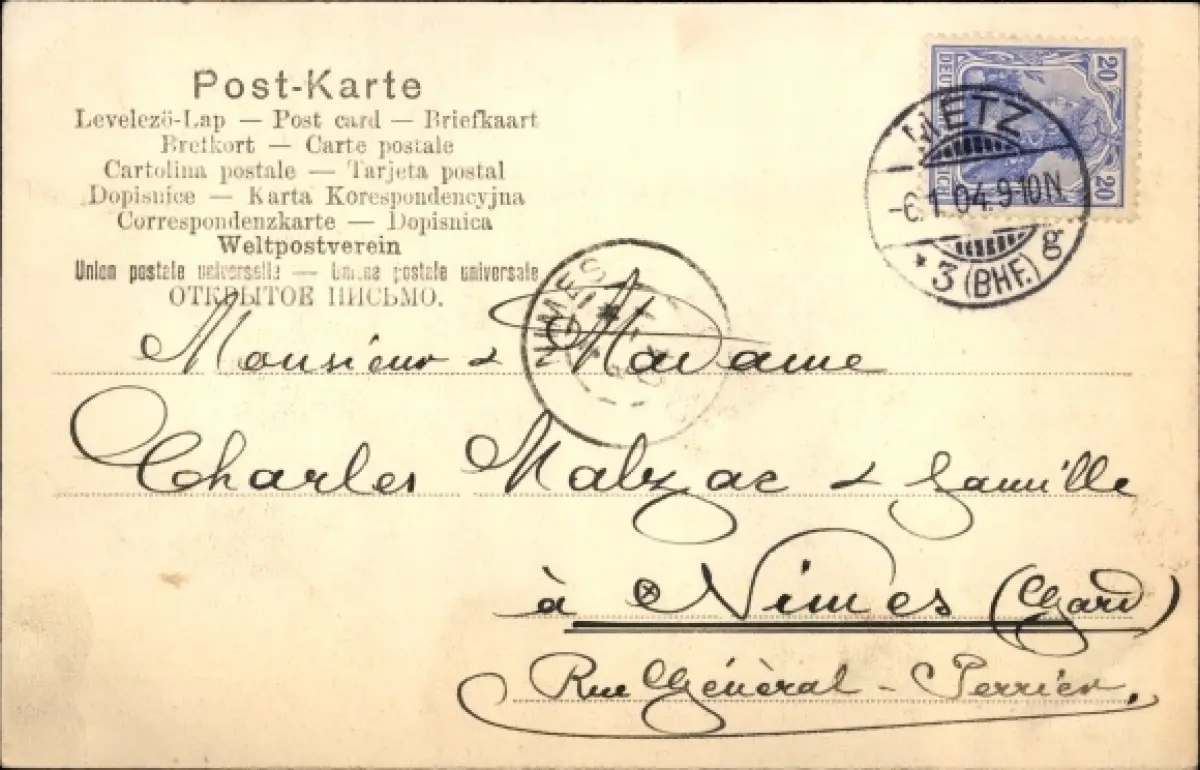 Post-Karte
Levelezö-Lap — Post card — Briefkaart
Brefkort — Carte postale
Cartolina postale — Tarjeta postal
Dopisnice — Karta Korespondencyjna
Correspondenzkarte — Dopisnica
Weltpostverein
Union postale universelle — Unione postale universale
ОТКРЫТОЕ ПИСЬМО.
20
DEUTSCHES REICH
20
METZ
-6.1.04.9-10N
g
* 3 (BHF.)
NIMES
Monsieur & Madame
Charles Malzac & famille
à Nîmes (Gard)
Rue Général-Perrier.